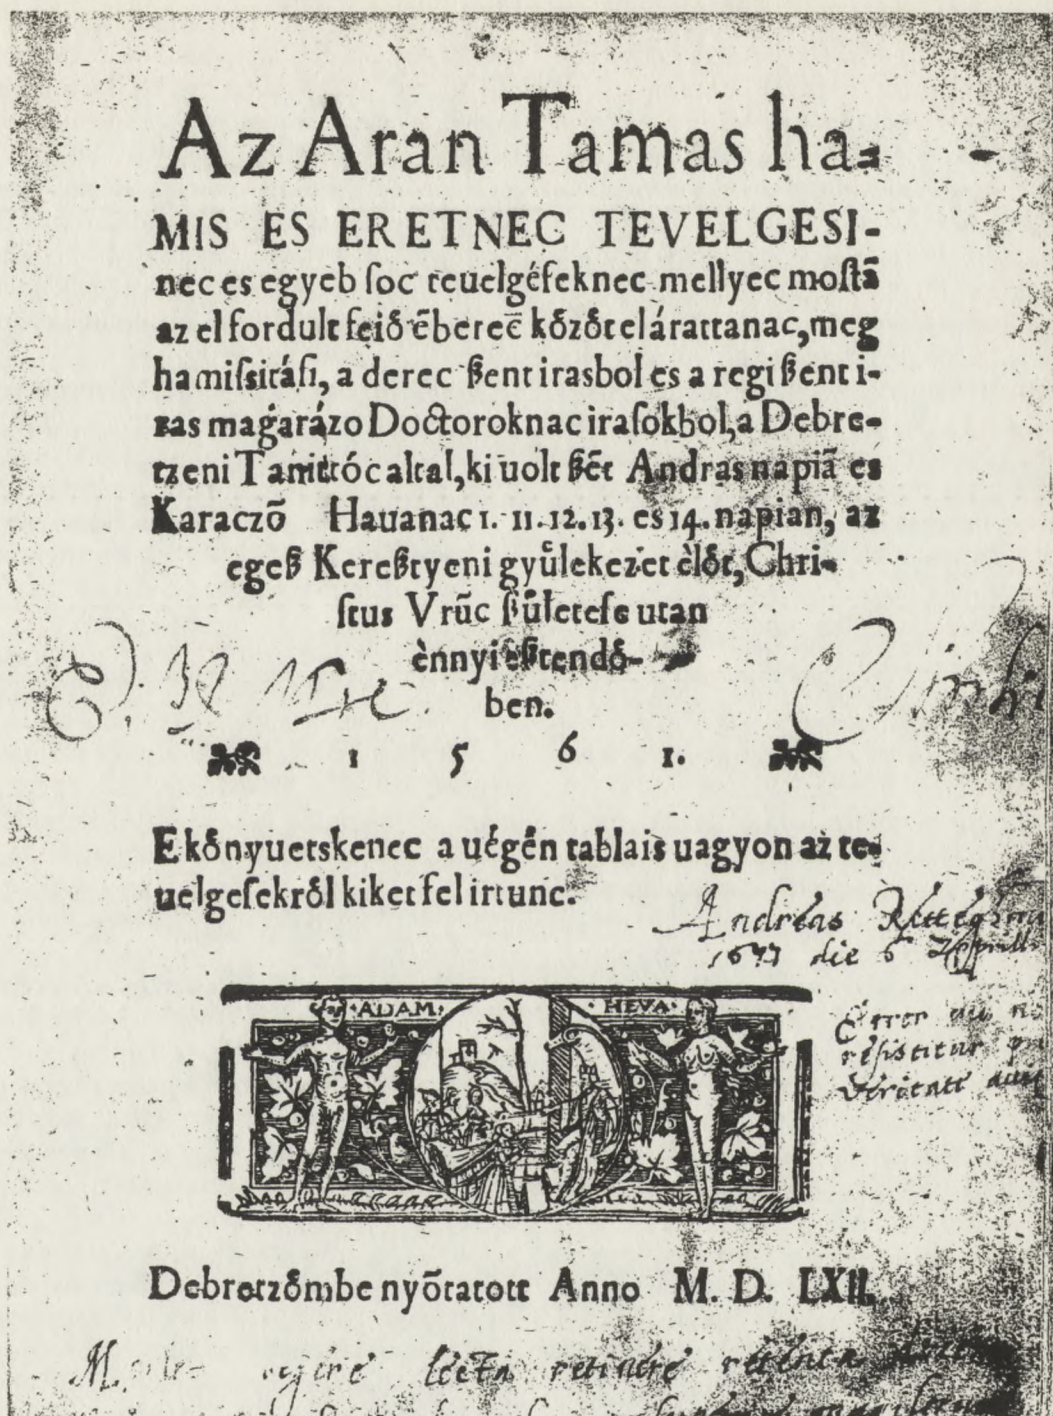 Az Aran Tamas ha=
MIS ES ERETNEC TEVELGESI-
nec es egyeb ſoc teuelgéſeknec mellyec moſtā
az el fordult feiő ēbereē kőzőt el árattanac, meg
hamiſsitáſi, a derec ßent irasbol es a regi ßent i-
ras maǵarázo Doctoroknac iraſokbol, a Debre-
tzeni Tanittóc altal, ki uolt ßēt Andras napiā es
Karaczō Hauanac 1. 11. 12. 13. es 14. napian, az
egeß Kereßtyeni gyűlekezet èlőt, Chri-
ſtus Vrūc ßűleteſe utan
ènnyi eßtendő-
ben.
1 5 6 1.
E kőnyuetskenec a uégén tablais uagyon az te-
uelgeſekről kiket fel irtunc.
Andreas
die 6
·ADAM· ·HEVA·
Error
resistitur
Debretzőmbe nyōtatott Anno M. D. LXII.
lecta retinere